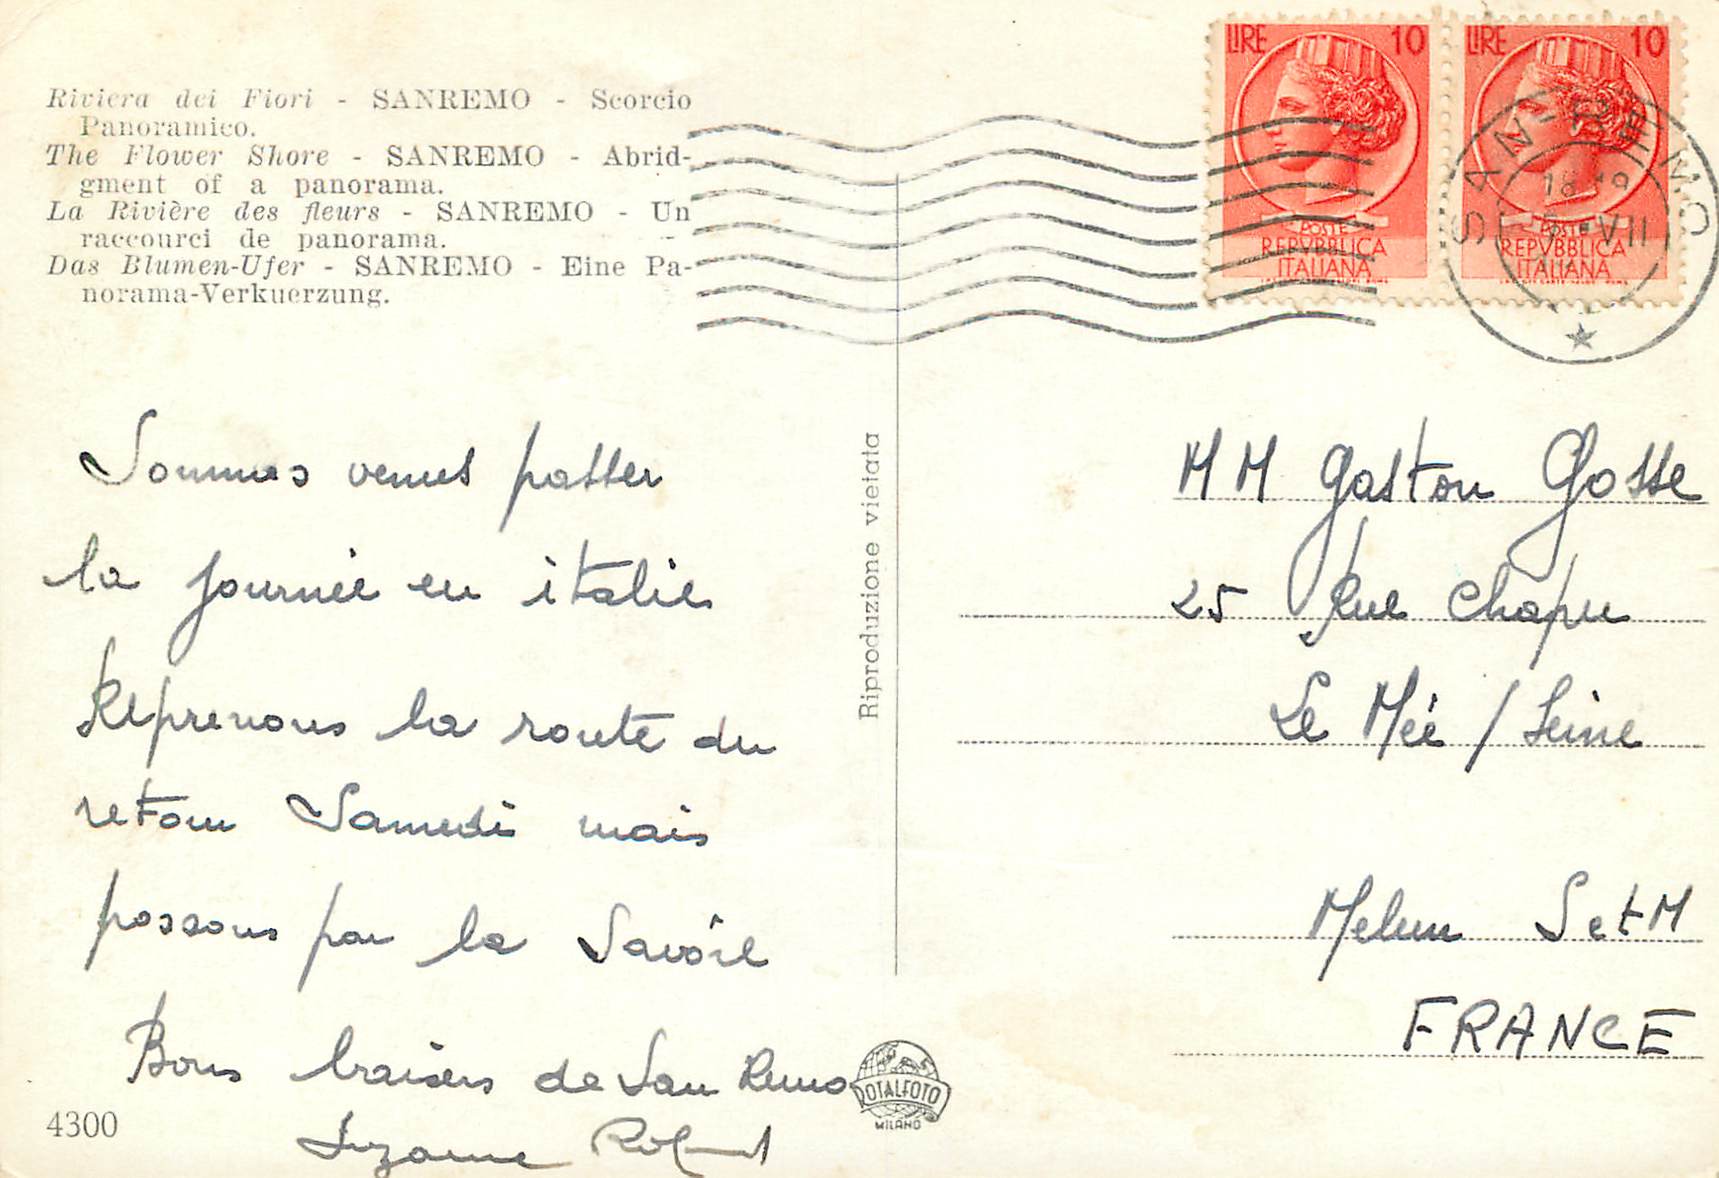 Riviera dei Fiori - SANREMO - Scorcio
Panoramico.
The Flower Shore - SANREMO - Abrid-
gment of a panorama.
La Rivière des fleurs - SANREMO - Un
raccourci de panorama.
Das Blumen-Ufer - SANREMO - Eine Pa-
norama-Verkuerzung.
Sommes venus passer
la journée en italie
Reprenons la route du
retour Samedi mais
passons par la Savoie
Bons baisers de San Remo
Suzanne Roland
4300
Riproduzione vietata
ROTALFOTO
MILANO
LIRE 10
POSTE
REPVBBLICA
ITALIANA
LIRE 10
POSTE
REPVBBLICA
ITALIANA
SAN-REMO
VII
MM Gaston Gosse
25 Rue Chapu
Le Mée / Seine
Melun S et M
FRANCE